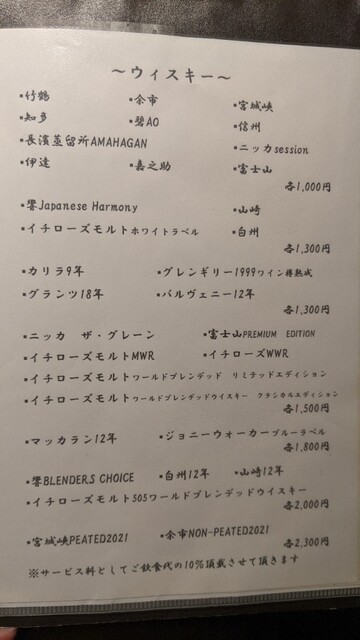 ～ウィスキー～
▪竹鶴 ▪余市 ▪宮城峡
▪知多 ▪碧AO ▪信州
▪長濱蒸留所AMAHAGAN ▪ニッカsession
▪伊達 ▪嘉之助 ▪富士山
各1,000円
▪響Japanese Harmony ▪山崎
▪イチローズモルトホワイトラベル ▪白州
各1,300円
▪カリラ9年 ▪グレンギリー1999ワイン樽熟成
▪グランツ18年 ▪バルヴェニー12年
各1,300円
▪ニッカ ザ・グレーン ▪富士山PREMIUM EDITION
▪イチローズモルトMWR ▪イチローズWWR
▪イチローズモルトワールドブレンデッド リミテッドエディション
▪イチローズモルトワールドブレンデッドウイスキー クラシカルエディション
各1,500円
▪マッカラン12年 ▪ジョニーウォーカーブルーラベル
各1,800円
▪響BLENDER,S CHOICE ▪白州12年 ▪山崎12年
▪イチローズモルト505ワールドブレンデッドウイスキー
各2,000円
▪宮城峡PEATED2021 ▪余市NON-PEATED2021
各2,300円
※サービス料としてご飲食代の10%頂戴させて頂きます